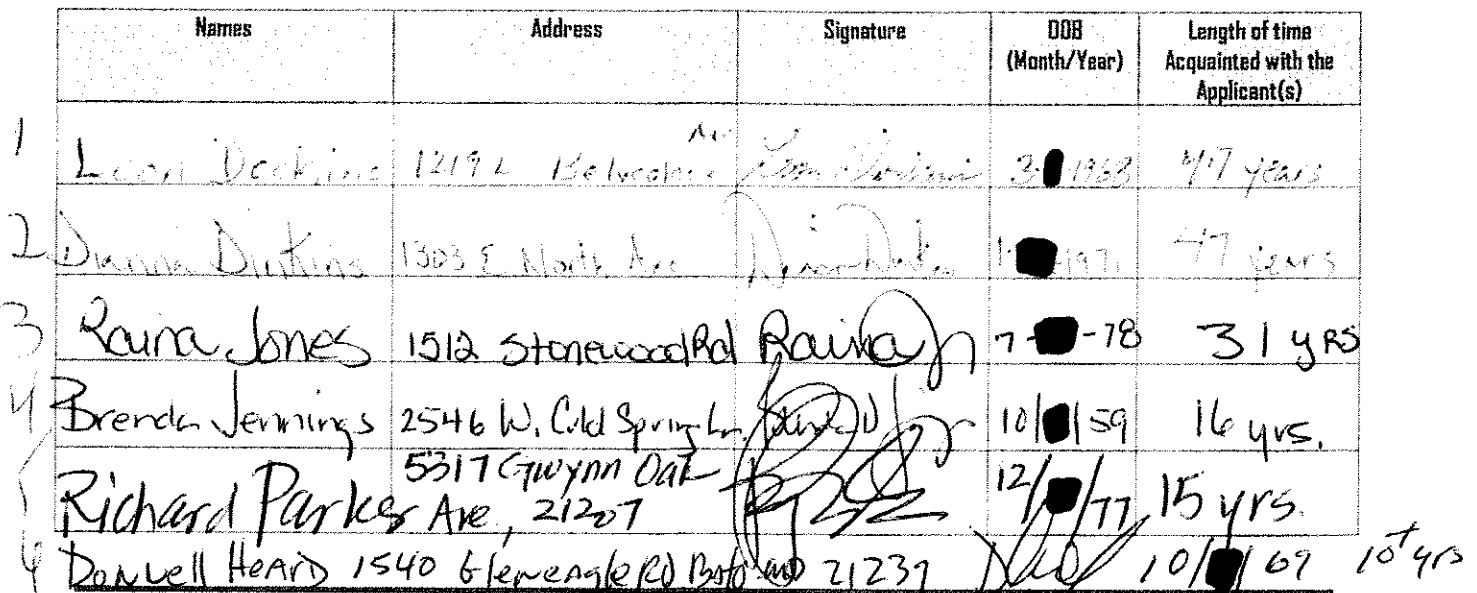 Names Address Signature DOB (Month/Year) Length of time Acquainted with the Applicant(s)
1 Leon 1219 Ave 3 1968 47 years
2 Dianna 1303 E North Ave 1971 47 years
3 Raina Jones 1512 Stonewood Rd Raina J 7- -78 31 yrs
4 Brenda Jennings 2546 W. Cold Spring Ln. 10/ /59 16 yrs.
Richard Parker 5317 Gwynn Oak Ave, 21207 12/ /77 15 yrs.
Donvell Heard 1540 Gleneagle Rd Balto MD 21239 10/ /69 10+ yrs